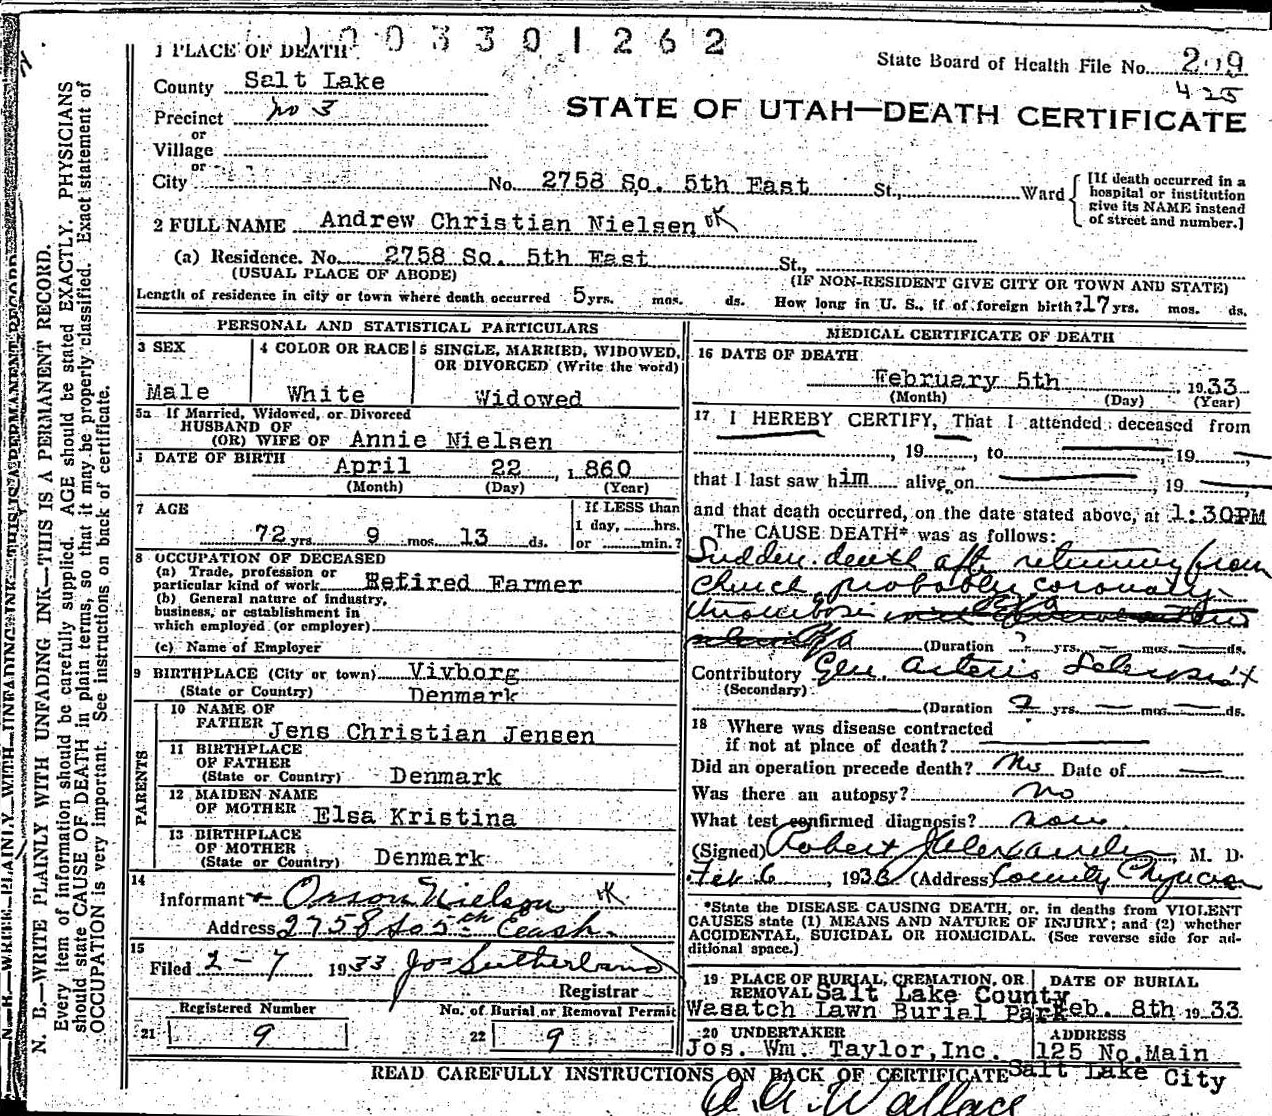 1003301262
1 PLACE OF DEATH
State Board of Health File No. 209
425
County Salt Lake
STATE OF UTAH—DEATH CERTIFICATE
Precinct no 3
or
Village
or
City No. 2758 So. 5th East St., Ward
[If death occurred in a
hospital or institution
give its NAME instead
of street and number.]
2 FULL NAME Andrew Christian Nielsen OK
(a) Residence. No. 2758 So. 5th East St.,
(USUAL PLACE OF ABODE) (IF NON-RESIDENT GIVE CITY OR TOWN AND STATE)
Length of residence in city or town where death occurred 5 yrs. mos. ds. How long in U. S., if of foreign birth? 17 yrs. mos. ds.
PERSONAL AND STATISTICAL PARTICULARS
3 SEX
Male
4 COLOR OR RACE
White
5 SINGLE, MARRIED, WIDOWED,
OR DIVORCED (Write the word)
Widowed
5a If Married, Widowed, or Divorced
HUSBAND OF
(OR) WIFE OF Annie Nielsen
DATE OF BIRTH
April 22, 1860
(Month) (Day) (Year)
7 AGE
72 yrs. 9 mos. 13 ds.
If LESS than
1 day, hrs.
or min.?
8 OCCUPATION OF DECEASED
(a) Trade, profession or
particular kind of work Retired Farmer
(b) General nature of industry,
business, or establishment in
which employed (or employer)
(c) Name of Employer
9 BIRTHPLACE (City or town) Vivborg
(State or Country) Denmark
PARENTS
10 NAME OF
FATHER Jens Christian Jensen
11 BIRTHPLACE
OF FATHER
(State or Country) Denmark
12 MAIDEN NAME
OF MOTHER Elsa Kristina
13 BIRTHPLACE
OF MOTHER
(State or Country) Denmark
14
Informant Orson Nielson OK
Address 2758 So 5th East
15
Filed 2-7 1933 Jos Sutherland
Registrar
Registered Number
21 9
No. of Burial or Removal Permit
22 9
MEDICAL CERTIFICATE OF DEATH
16 DATE OF DEATH
February 5th, 1933
(Month) (Day) (Year)
17 I HEREBY CERTIFY, That I attended deceased from
, 19 , to , 19 ,
that I last saw him alive on , 19 ,
and that death occurred, on the date stated above, at 1:30PM
The CAUSE DEATH* was as follows:
Sudden death after returning from
church, probably coronary
thrombosis
(Duration ? yrs. mos. ds.
Contributory Gen. Arterio Sclerosis
(Secondary)
(Duration ? yrs. mos. ds.
18 Where was disease contracted
if not at place of death?
Did an operation precede death? No Date of
Was there an autopsy? no
What test confirmed diagnosis? none
(Signed) Robert J Alexander, M. D.
Feb 6, 1933 (Address) County Physician
*State the DISEASE CAUSING DEATH, or, in deaths from VIOLENT
CAUSES state (1) MEANS AND NATURE OF INJURY; and (2) whether
ACCIDENTAL, SUICIDAL OR HOMICIDAL. (See reverse side for ad-
ditional space.)
19 PLACE OF BURIAL, CREMATION, OR
REMOVAL Salt Lake County
Wasatch Lawn Burial Park
DATE OF BURIAL
Feb. 8th 1933
20 UNDERTAKER
Jos. Wm. Taylor, Inc.
ADDRESS
125 No. Main
Salt Lake City
READ CAREFULLY INSTRUCTIONS ON BACK OF CERTIFICATE
Wallace
N. B.—WRITE PLAINLY WITH UNFADING INK—THIS IS A PERMANENT RECORD.
Every item of information should be carefully supplied. AGE should be stated EXACTLY. PHYSICIANS
should state CAUSE OF DEATH in plain terms, so that it may be properly classified. Exact statement of
OCCUPATION is very important. See instructions on back of certificate.